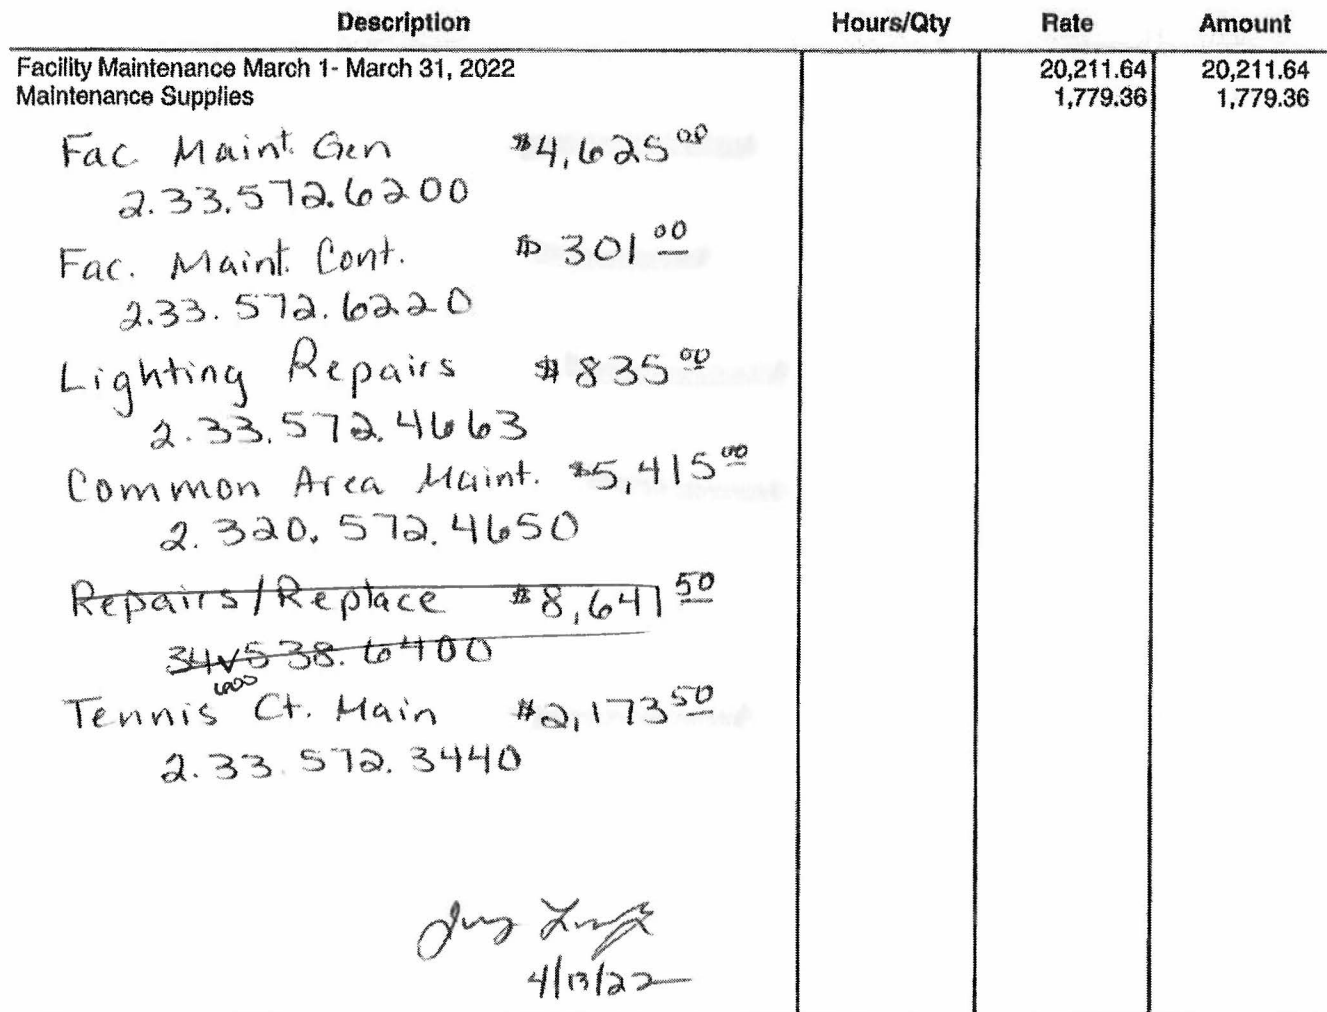 Description Hours/Qty Rate Amount
Facility Maintenance March 1- March 31, 2022 20,211.64 20,211.64
Maintenance Supplies 1,779.36 1,779.36
Fac. Maint. Gen $4,625 00
2.33.572.6200
Fac. Maint. Cont. $301 00
2.33.572.6220
Lighting Repairs $835 00
2.33.572.4663
Common Area Maint. $5,415 00
2.320.572.4650
Repairs/Replace $8,641 50
34 538.6400
Tennis Ct. Main $2,173 50
2.33.572.3440
4/13/22